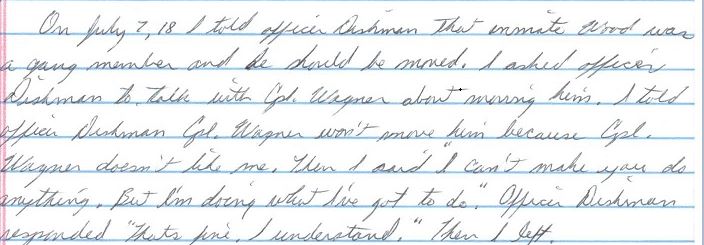 On July 7, 18 I told officer Dishman that inmate Wood was
a gang member and he should be moved. I asked officer
Dishman to talk with Cpl. Wagner about moving him. I told
officer Dishman Cpl. Wagner won't move him because Cpl.
Wagner doesn't like me. Then I said "I can't make you do
anything. But I'm doing what I've got to do." Officer Dishman
responded "Thats fine, I understand." Then I left.